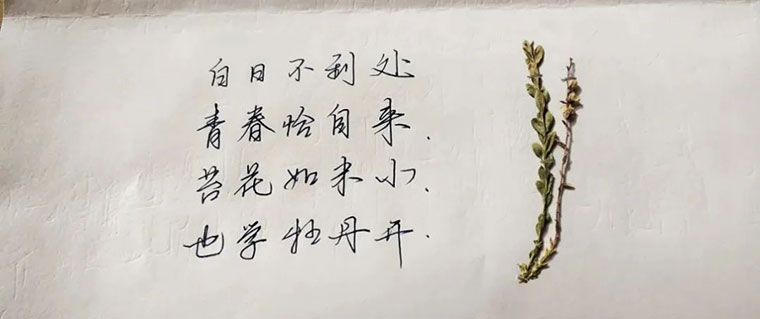 白日不到处
青春恰自来.
苔花如米小.
也学牡丹开.